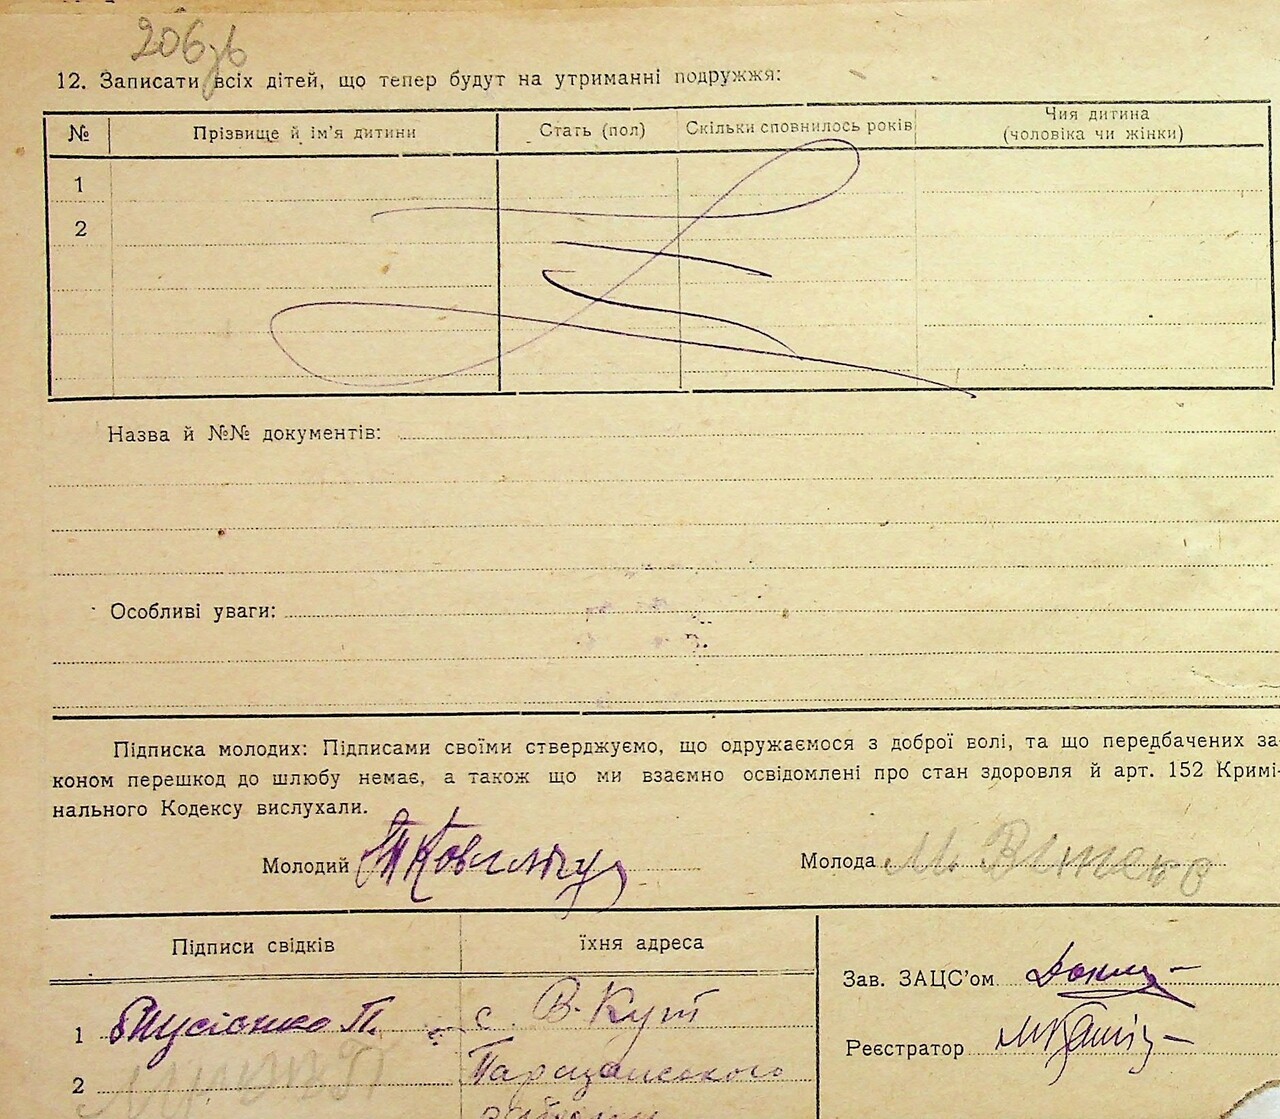 206зв
12. Записати всіх дітей, що тепер будут на утриманні подружжя:
№ Прізвище й ім'я дитини Стать (пол) Скільки сповнилось років Чия дитина
(чоловіка чи жінки)
1
2
Назва й №№ документів:
Особливі уваги:
Підписка молодих: Підписами своїми стверджуємо, що одружаємося з доброї волі, та що передбачених за-
коном перешкод до шлюбу немає, а також що ми взаємно освідомлені про стан здоровля й арт. 152 Кримі-
нального Кодексу вислухали.
Молодий Молода М.
Підписи свідків їхня адреса
Зав. ЗАЦС'ом
1 П. с. В-Кут
Реєстратор
2